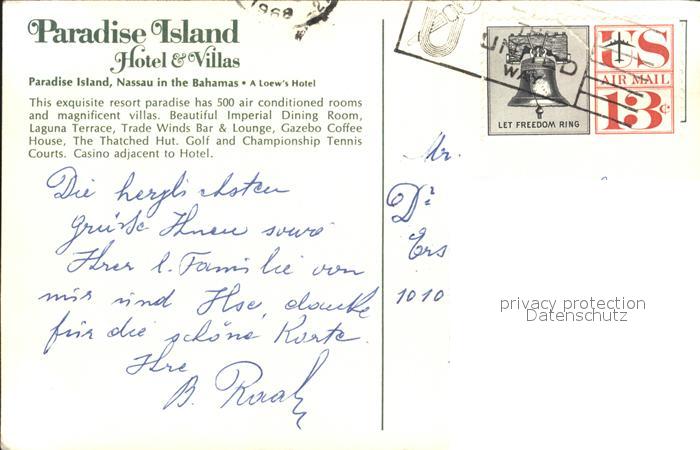 Paradise Island
Hotel & Villas
Paradise Island, Nassau in the Bahamas • A Loew's Hotel
This exquisite resort paradise has 500 air conditioned rooms
and magnificent villas. Beautiful Imperial Dining Room,
Laguna Terrace, Trade Winds Bar & Lounge, Gazebo Coffee
House, The Thatched Hut. Golf and Championship Tennis
Courts. Casino adjacent to Hotel.
Die herzlichsten
Grüße Ihnen sowie
Ihrer l. Familie von
mir und Ilse, danke
für die schöne Karte.
Ihre
B.
1968
UNITED
WAY
LET FREEDOM RING
US
AIR MAIL
13c
Mr.
Dr
Ers
1010
privacy protection
Datenschutz